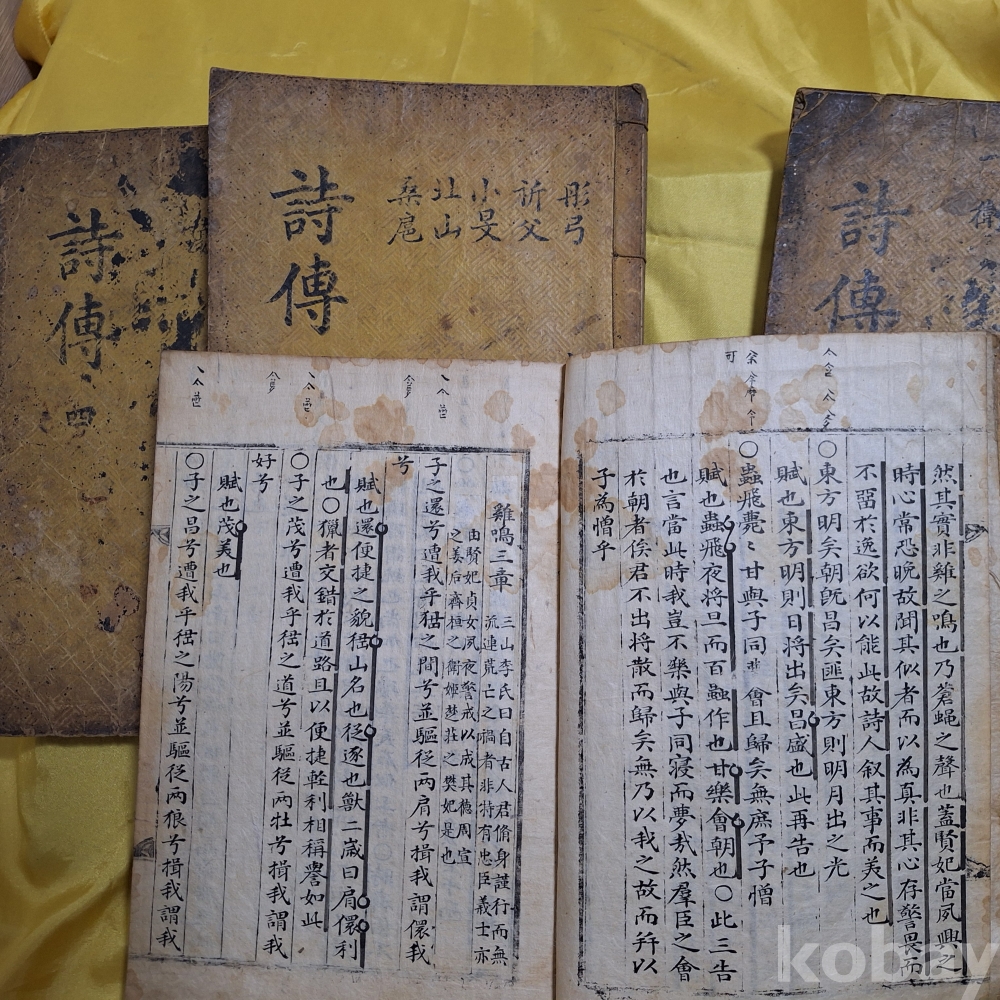 詩傳
四
詩傳
彤弓
祈父
小旻
北山
桑扈
詩傳
然其實非雞之鳴也乃蒼蠅之聲也蓋賢妃當夙興之
時心常恐晚故聞其似者而以為真非其心存警畏而
不留於逸欲何以能此故詩人叙其事而美之也
○東方明矣朝旣昌矣匪東方則明月出之光
賦也東方明則日將出矣昌盛也此再告也
○蟲飛薨〻甘與子同夢會且歸矣無庶予子憎
賦也蟲飛夜將旦而百蟲作也甘樂會朝也○此三告
也言當此時我豈不樂與子同寢而夢哉然羣臣之會
於朝者俟君不出將散而歸矣無乃以我之故而幷以
子為憎乎
雞鳴三章
三山李氏曰自古人君脩身謹行而無
流連荒亡之禍者非特有忠臣義士亦
由賢妃貞女夙夜警戒以成其德周宣
之姜后齊桓之衛姬楚莊之樊妃是也
子之還兮遭我乎峱之間兮並驅從兩肩兮揖我謂儇我
兮
賦也還便捷之貌峱山名也從逐也獸三歲曰肩儇利
也○獵者交錯於道路且以便捷輕利相稱譽如此
○子之茂兮遭我乎峱之道兮並驅從兩牡兮揖我謂我
好兮
賦也茂美也
○子之昌兮遭我乎峱之陽兮並驅從兩狼兮揖我謂我
kobay